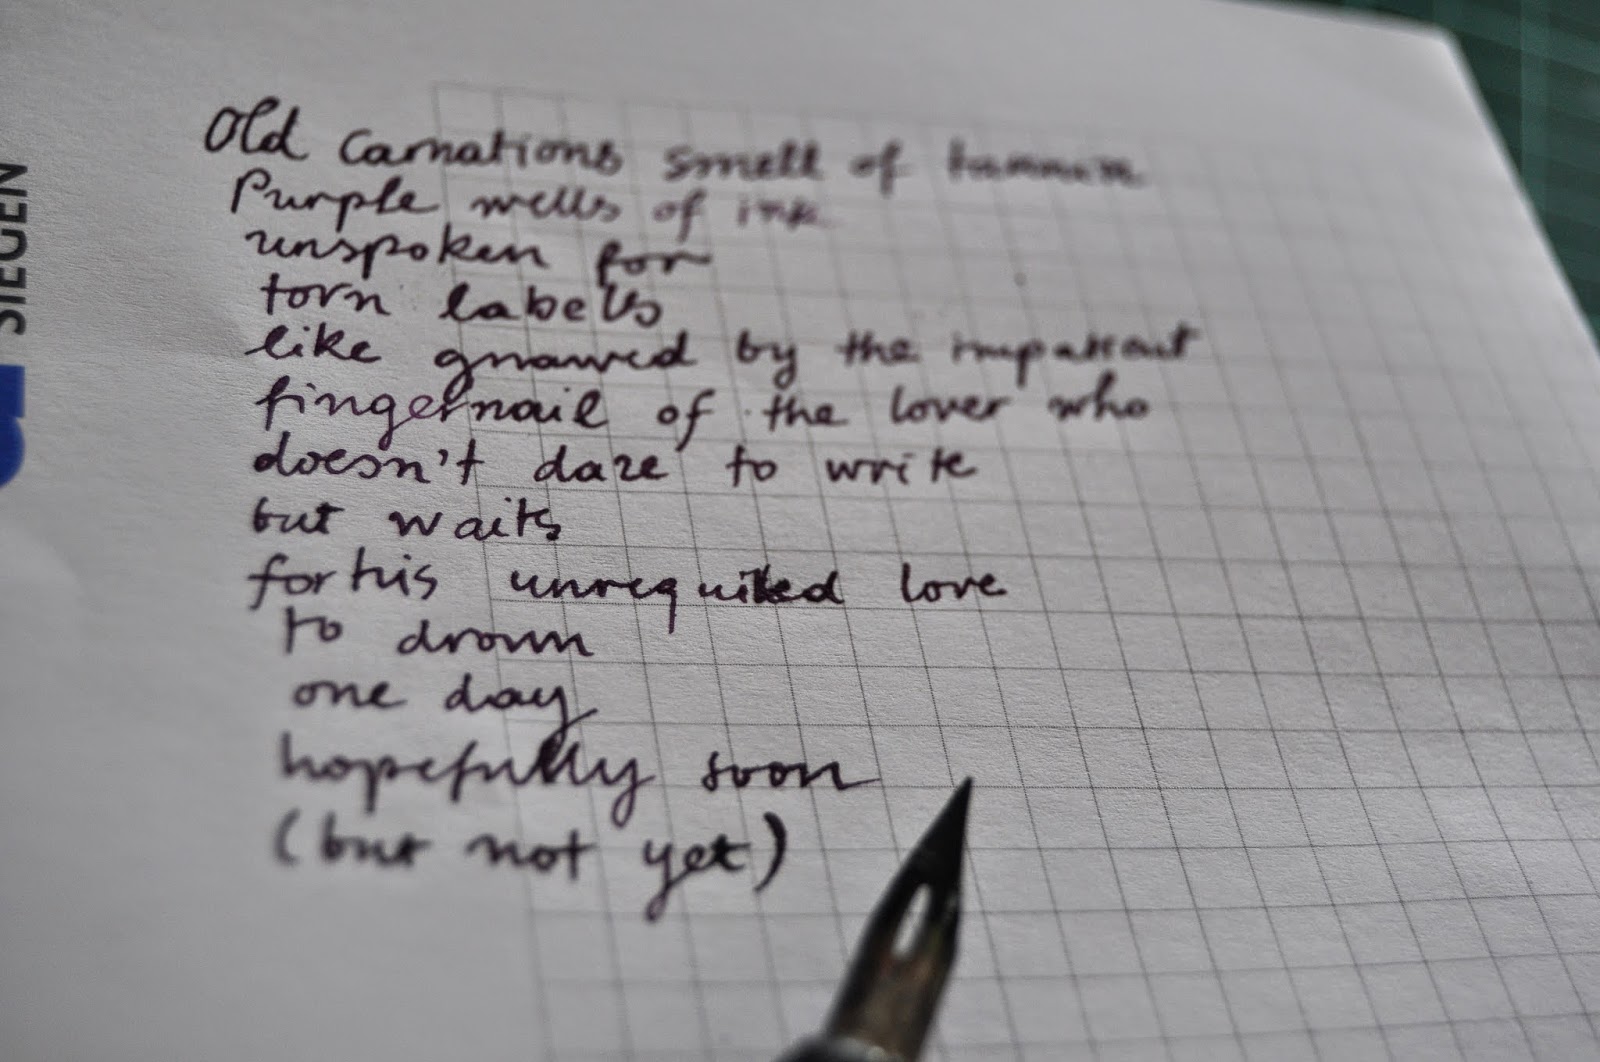 SIEGEN
Old Carnations smell of
Purple wells of ink
unspoken for
torn labels
like gnawed by the impatient
fingernail of the lover who
doesn't dare to write
but waits
for his unrequited love
to drown
one day
hopefully soon
(but not yet)